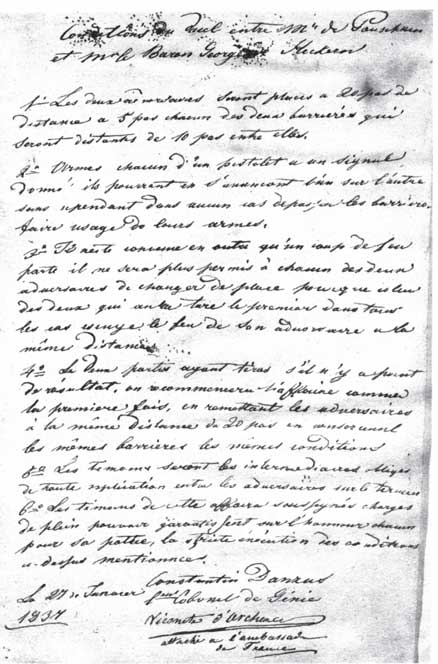 Conditions du duel entre Mr de Pouschkin
et Mr le Baron Georges de Heckeren
1o Les deux adversaires seront placés à 20 pas de
distance à 5 pas chacun des deux barrières qui
seront distantes de 10 pas entre elles.
2o Armés chacun d'un pistolet à un signal
donné ils pourront en s'avançant l'un sur l'autre
sans cependant dans aucun cas dépasser les barrières
faire usage de leurs armes.
3o Il reste convenu en outre qu'un coup de feu
parti il ne sera plus permis à chacun des deux
adversaires de changer de place pour que celui
des deux qui aura tiré le premier dans tous
les cas essuye le feu de son adversaire à la
même distance
4o Les deux parties ayant tiré s'il n'y a point
de résultat, on recommencera l'affaire comme
la première fois, en remettant les adversaires
à la même distance de 20 pas en conservant
les mêmes barrières les mêmes conditions
5o Les témoins seront les intermédiaires obligés
de toute explication entre les adversaires sur le terrain
6o Les témoins de cette affaire soussignés chargés
de plein pouvoir garantissent sur l'honneur chacun
pour sa partie, la stricte exécution des conditions
ci-dessus mentionnées.
Constantin Danzas
Le 27 Janvier
1837
Lieut Colonel de Génie
Vicomte d'Archiac
attaché à l'ambassade
de France